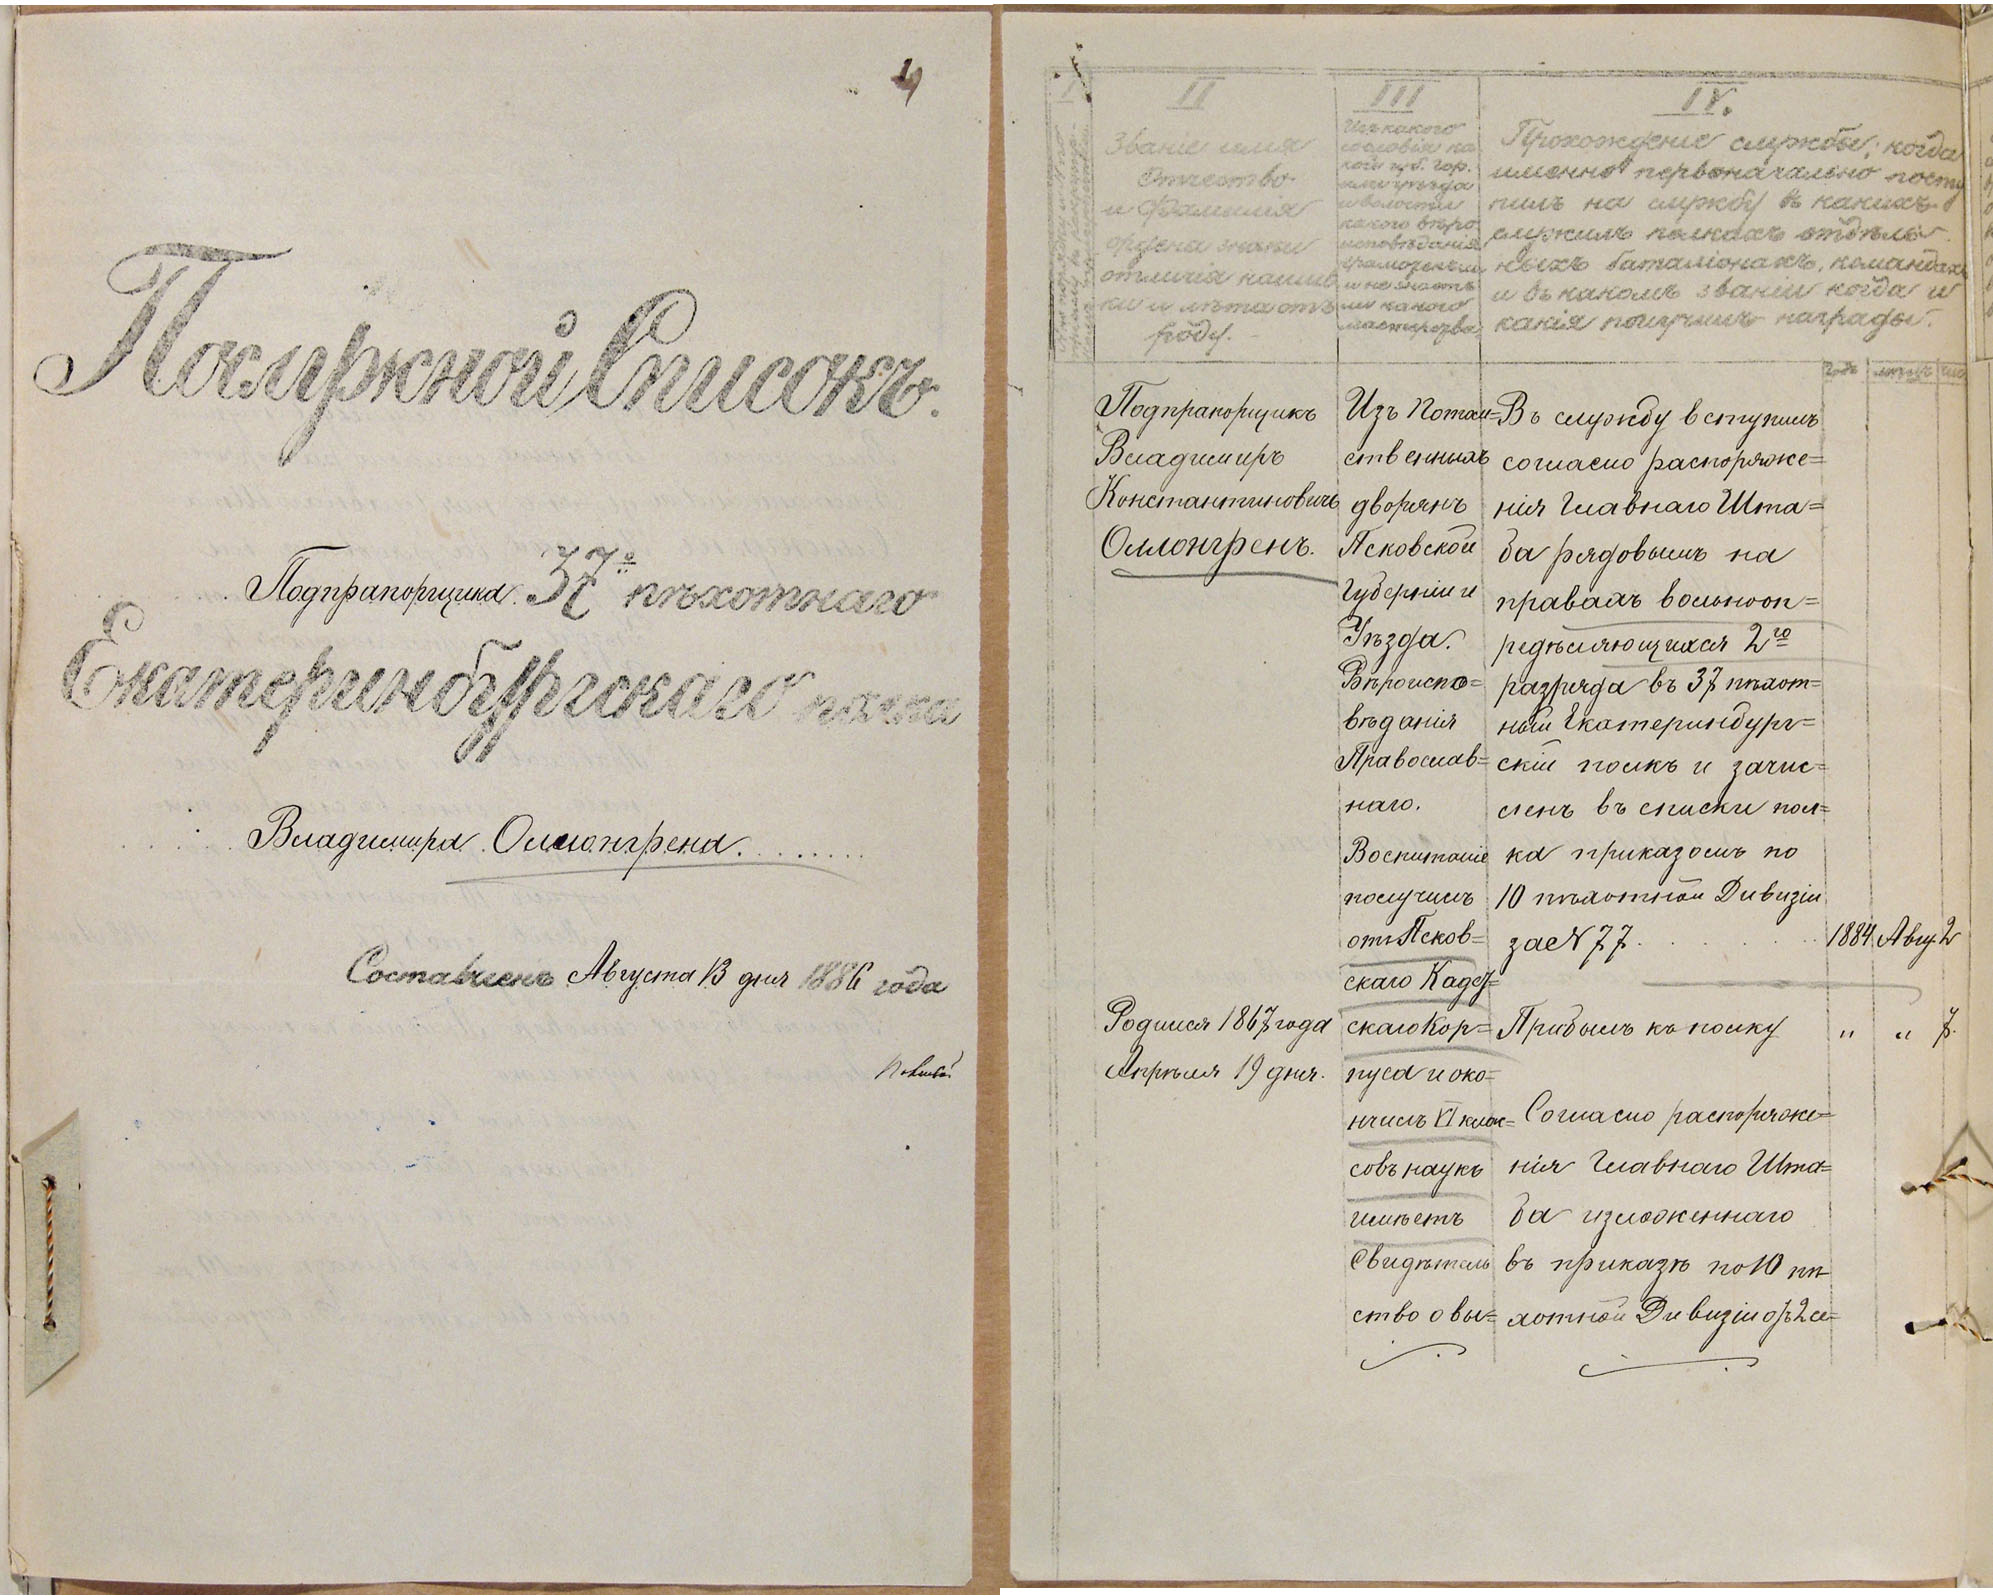 Послужной Списокъ.
Подпрапорщика 37го пѣхотнаго
Екатеринбургскаго полка
Владимира Оллонгрена
Составленъ Августа 13 дня 1886 года
I
II
Званіе имя
отчество
и Фамилія
ордена знаки
отличія нашив
ки и лѣта отъ
роду.
III
Изъ какого
сословія ка
кой губ. гор.
или уѣзда
и волости
какого вѣро
исповѣданія
грамотенъ ли
и не знаетъ
ли какого
мастерства
IV.
Прохожденіе службы, когда
именно первоначально посту
пилъ на службу въ какихъ
служилъ полкахъ отдѣль
ныхъ баталіонахъ, командахъ
и въ какомъ званіи когда и
какія получилъ награды.
Годъ мѣсяцъ
Подпрапорщикъ
Владимиръ
Константиновичъ
Оллонгренъ.
Родился 1867 года
Апрѣля 19 дня.
Изъ Потом=
ственныхъ
дворянъ
Псковской
Губерніи и
Уѣзда.
Вѣроиспо=
вѣданія
Православ=
наго.
Воспитаніе
получилъ
отъ Псков=
скаго Кадет=
скаго Кор=
пуса и око=
нчилъ VI клас=
совъ наукъ
имѣетъ
Свидѣтель
ство о вы=
Въ службу вступилъ
согласно распоряже=
нія Главнаго Шта=
ба рядовымъ на
правахъ вольнооп=
редѣляющихся 2го
разряда въ 37 пѣхот=
ный Екатеринбург=
скій полкъ и зачис=
ленъ въ списки пол=
ка приказомъ по
10 пѣхотной Дивизіи
за № 77 1884 Авгу. 2
Прибылъ къ полку " " 7.
Согласно распоряже=
нія Главнаго Шта=
ба изложеннаго
въ приказѣ по 10 пѣ
хотной Дивизіи